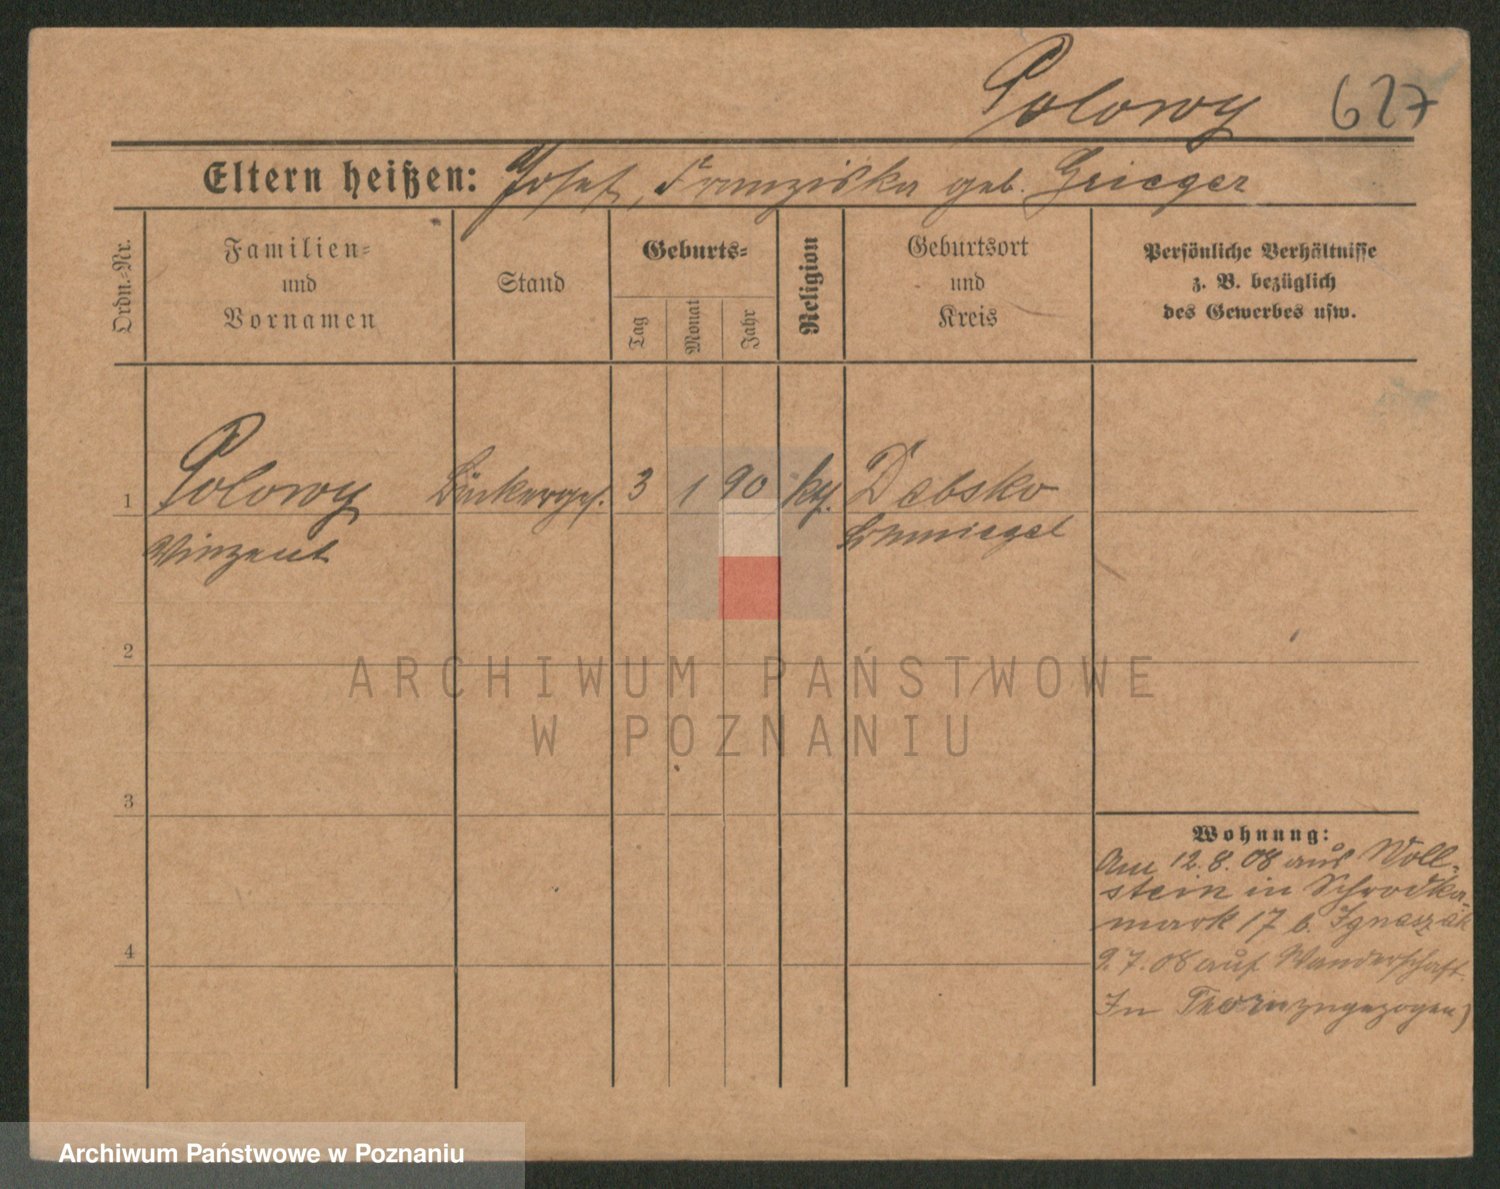 Polowy 627
Eltern heißen: Josef, Franziska geb. Grieger
Ordn.-Nr.
Familien-
und
Vornamen
Stand
Geburts-
Tag
Monat
Jahr
Religion
Geburtsort
und
Kreis
Persönliche Verhältnisse
z. B. bezüglich
des Gewerbes usw.
1 Polowy Bäckerges. 3 1 90 kth. Debsko
Vinzent Schmiegel
2
3
4
Wohnung:
Am 12.8.08 aus Woll-
stein in Schrodka-
mark 17 b. Ignaszak
9.7.08 auf Wanderschaft.
In Thorn zugezogen)
ARCHIWUM PAŃSTWOWE
W POZNANIU
Archiwum Państwowe w Poznaniu